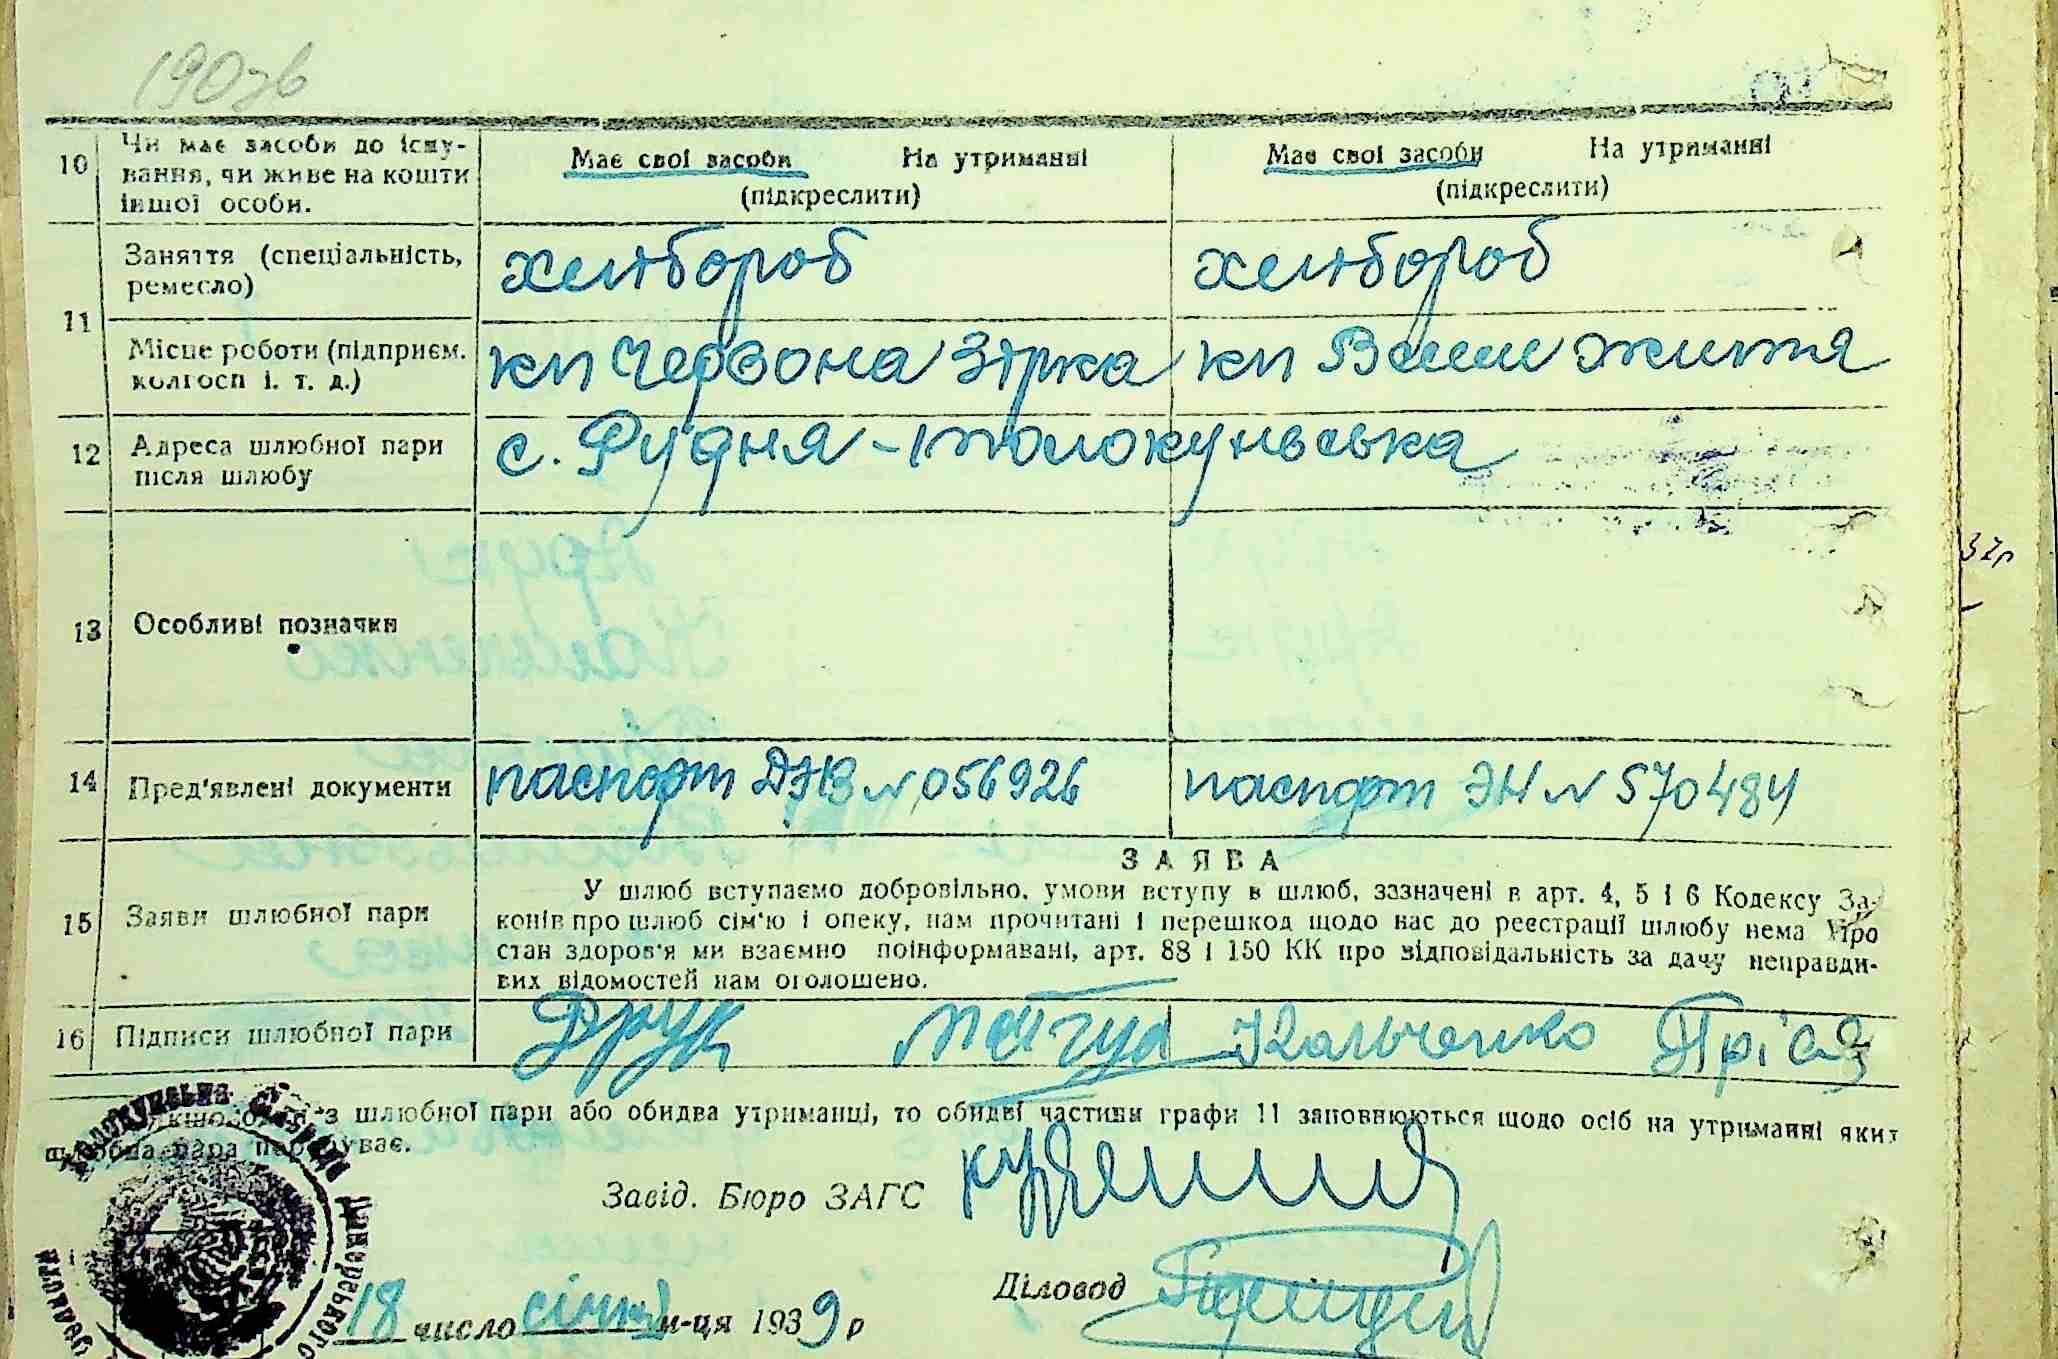 190зв
10 Чи має засоби до існу-
вання, чи живе на кошти
іншої особи.
Має свої засоби На утриманні
(підкреслити)
Має свої засоби На утриманні
(підкреслити)
11 Заняття (спеціальність,
ремесло)
хлібороб хлібороб
Місце роботи (підприєм.
колгосп і. т. д.)
кп Червона Зірка кп життя
12 Адреса шлюбної пари
після шлюбу
с. Рудня-толокунська
13 Особливі позначки
14 Пред'явлені документи
паспорт № 056926 паспорт ЭН № 570484
15 Заяви шлюбної пари
ЗАЯВА
У шлюб вступаємо добровільно, умови вступу в шлюб, зазначені в арт. 4, 5 і 6 Кодексу За-
конів про шлюб сім'ю і опеку, нам прочитані і перешкод щодо нас до реєстрації шлюбу нема Про
стан здоров'я ми взаємно поінформавані, арт. 88 і 150 КК про відповідальність за дачу неправди-
вих відомостей нам оголошено.
16 Підписи шлюбної пари
Друк Кальченко
з шлюбної пари або обидва утриманці, то обидві частини графи 11 заповнюються щодо осіб на утриманні яких
шлюбна пара перебуває.
Завід. Бюро ЗАГС
Діловод
18 число січня м-ця 1939 р
37р